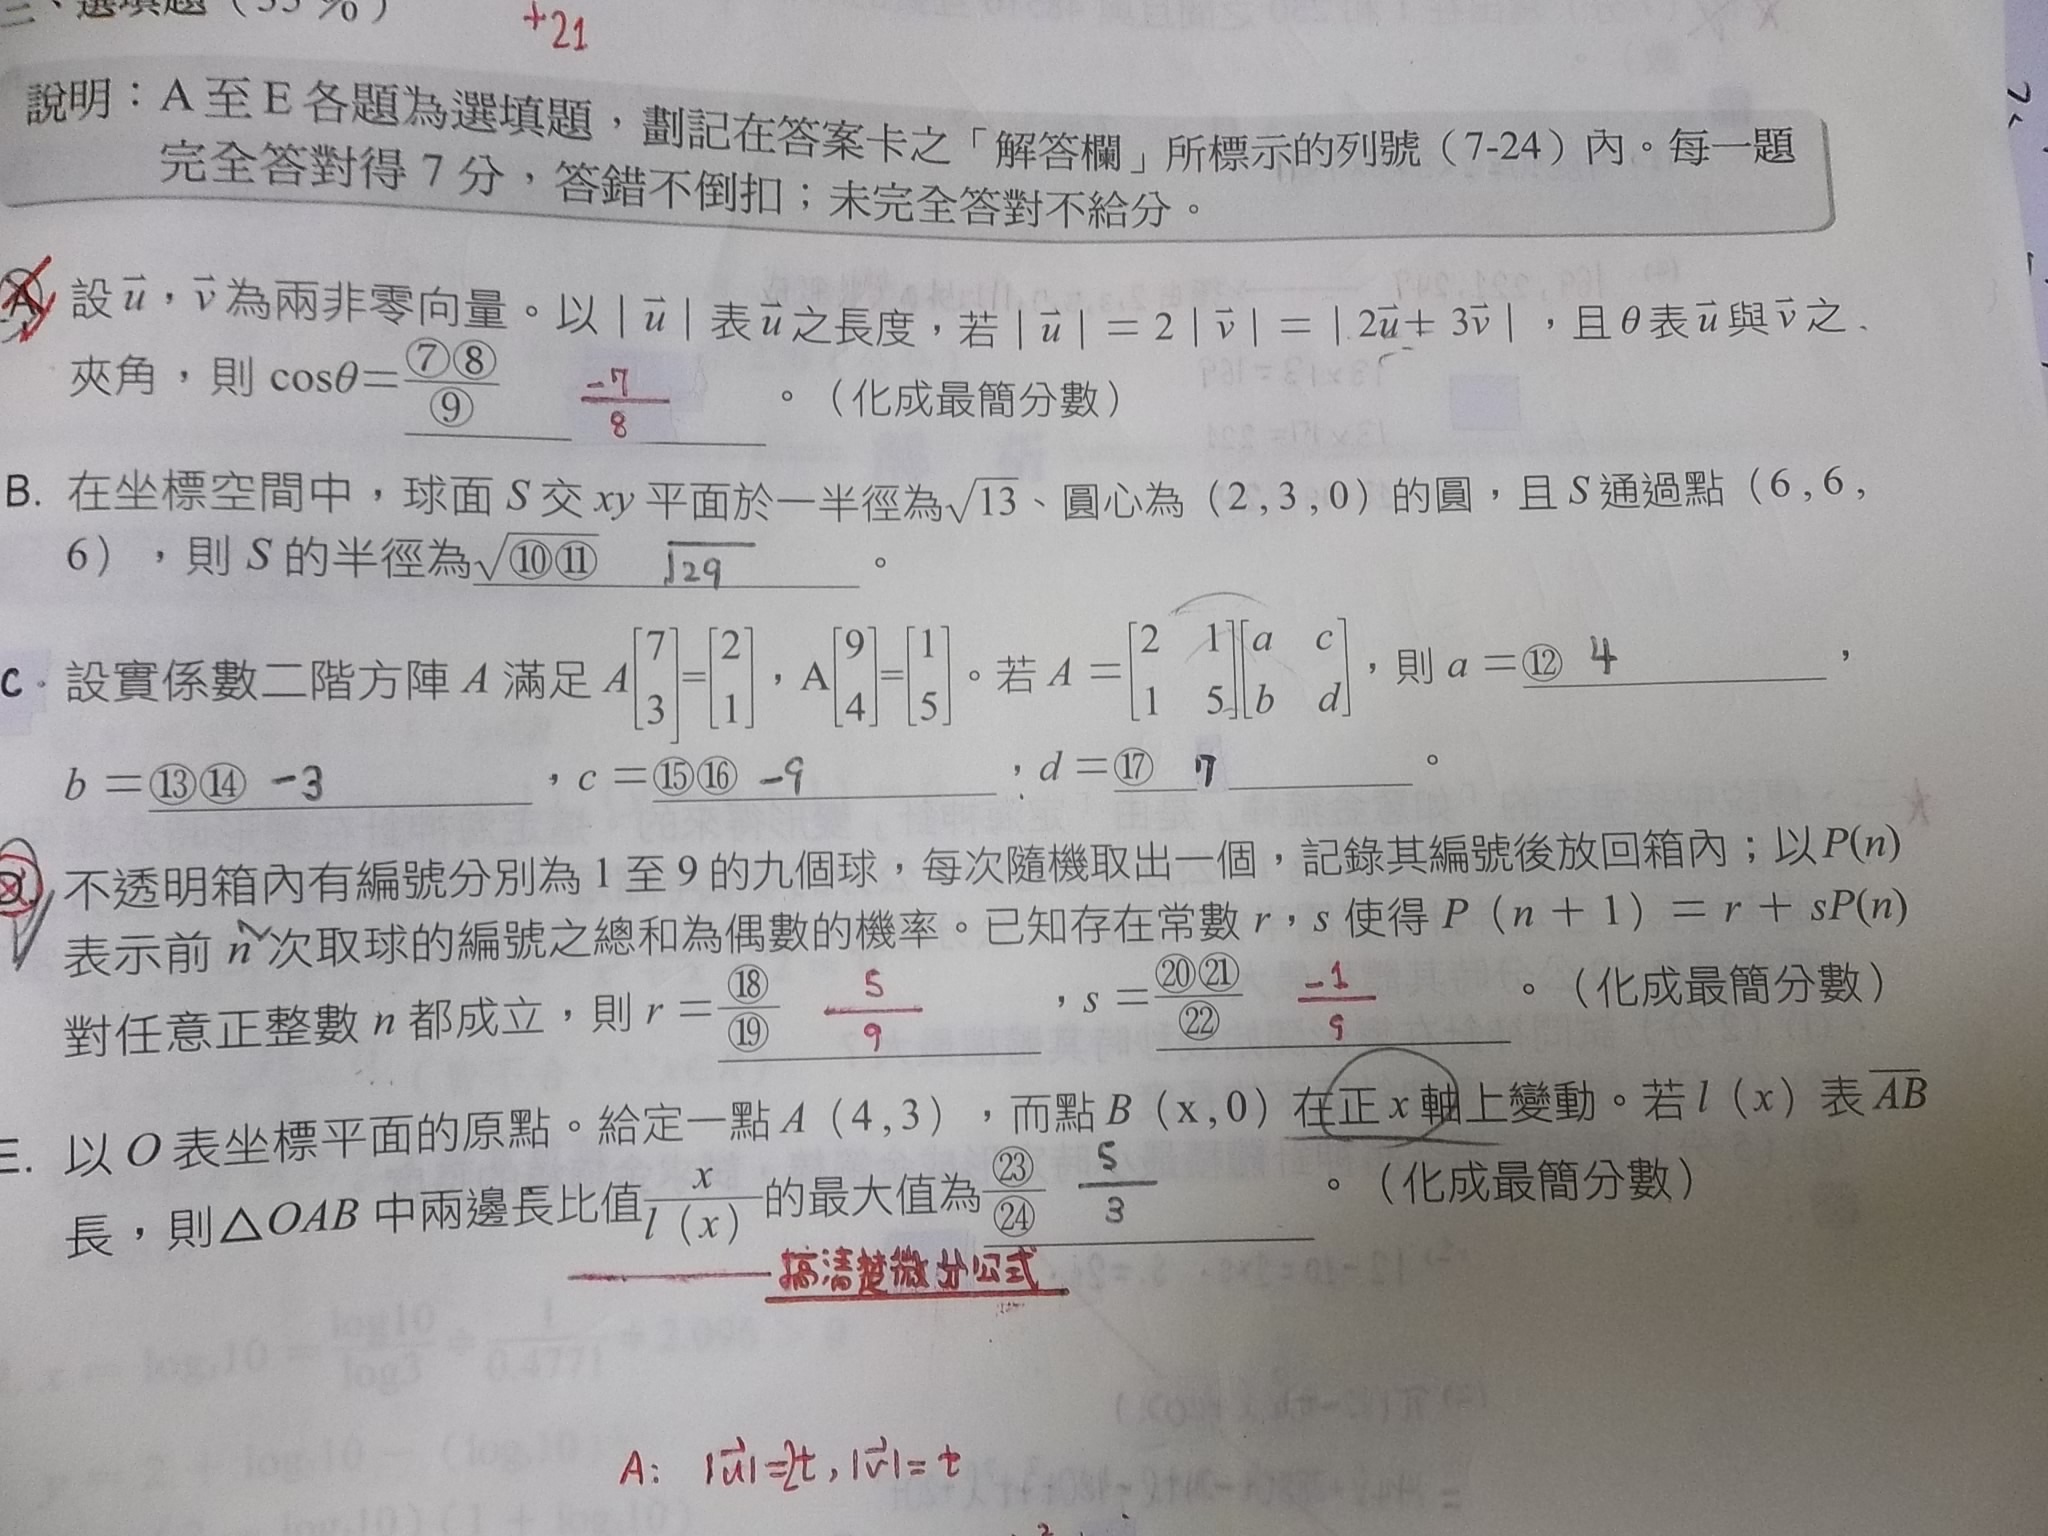 、選填題(35%)
+21
說明:A 至 E 各題為選填題,劃記在答案卡之「解答欄」所標示的列號(7-24)內。每一題
完全答對得 7 分,答錯不倒扣;未完全答對不給分。
A. 設 u⃗,v⃗ 為兩非零向量。以 | u⃗ | 表 u⃗ 之長度,若 | u⃗ | = 2 | v⃗ | = | 2u⃗ + 3v⃗ |,且 θ 表 u⃗ 與 v⃗ 之
夾角,則 cosθ = ⑦⑧/⑨ -7/8 。(化成最簡分數)
B. 在坐標空間中,球面 S 交 xy 平面於一半徑為 √13、圓心為(2,3,0)的圓,且 S 通過點(6,6,
6),則 S 的半徑為 √⑩⑪ √29 。
C. 設實係數二階方陣 A 滿足 A[7 3] = [2 1],A[9 4] = [1 5]。若 A = [2 1 1 5][a c b d],則 a = ⑫ 4 ,
b = ⑬⑭ -3 ,c = ⑮⑯ -9 ,d = ⑰ 7 。
D. 不透明箱內有編號分別為 1 至 9 的九個球,每次隨機取出一個,記錄其編號後放回箱內;以 P(n)
表示前 n 次取球的編號之總和為偶數的機率。已知存在常數 r,s 使得 P(n + 1)= r + sP(n)
對任意正整數 n 都成立,則 r = ⑱/⑲ 5/9 ,s = ⑳㉑/㉒ -1/9 。(化成最簡分數)
E. 以 O 表坐標平面的原點。給定一點 A(4,3),而點 B(x,0)在正 x 軸上變動。若 l(x)表 AB
長,則 △OAB 中兩邊長比值 x/l(x) 的最大值為 ㉓/㉔ 5/3 。(化成最簡分數)
搞清楚微分公式
A: |u⃗|=2t, |v⃗|= t